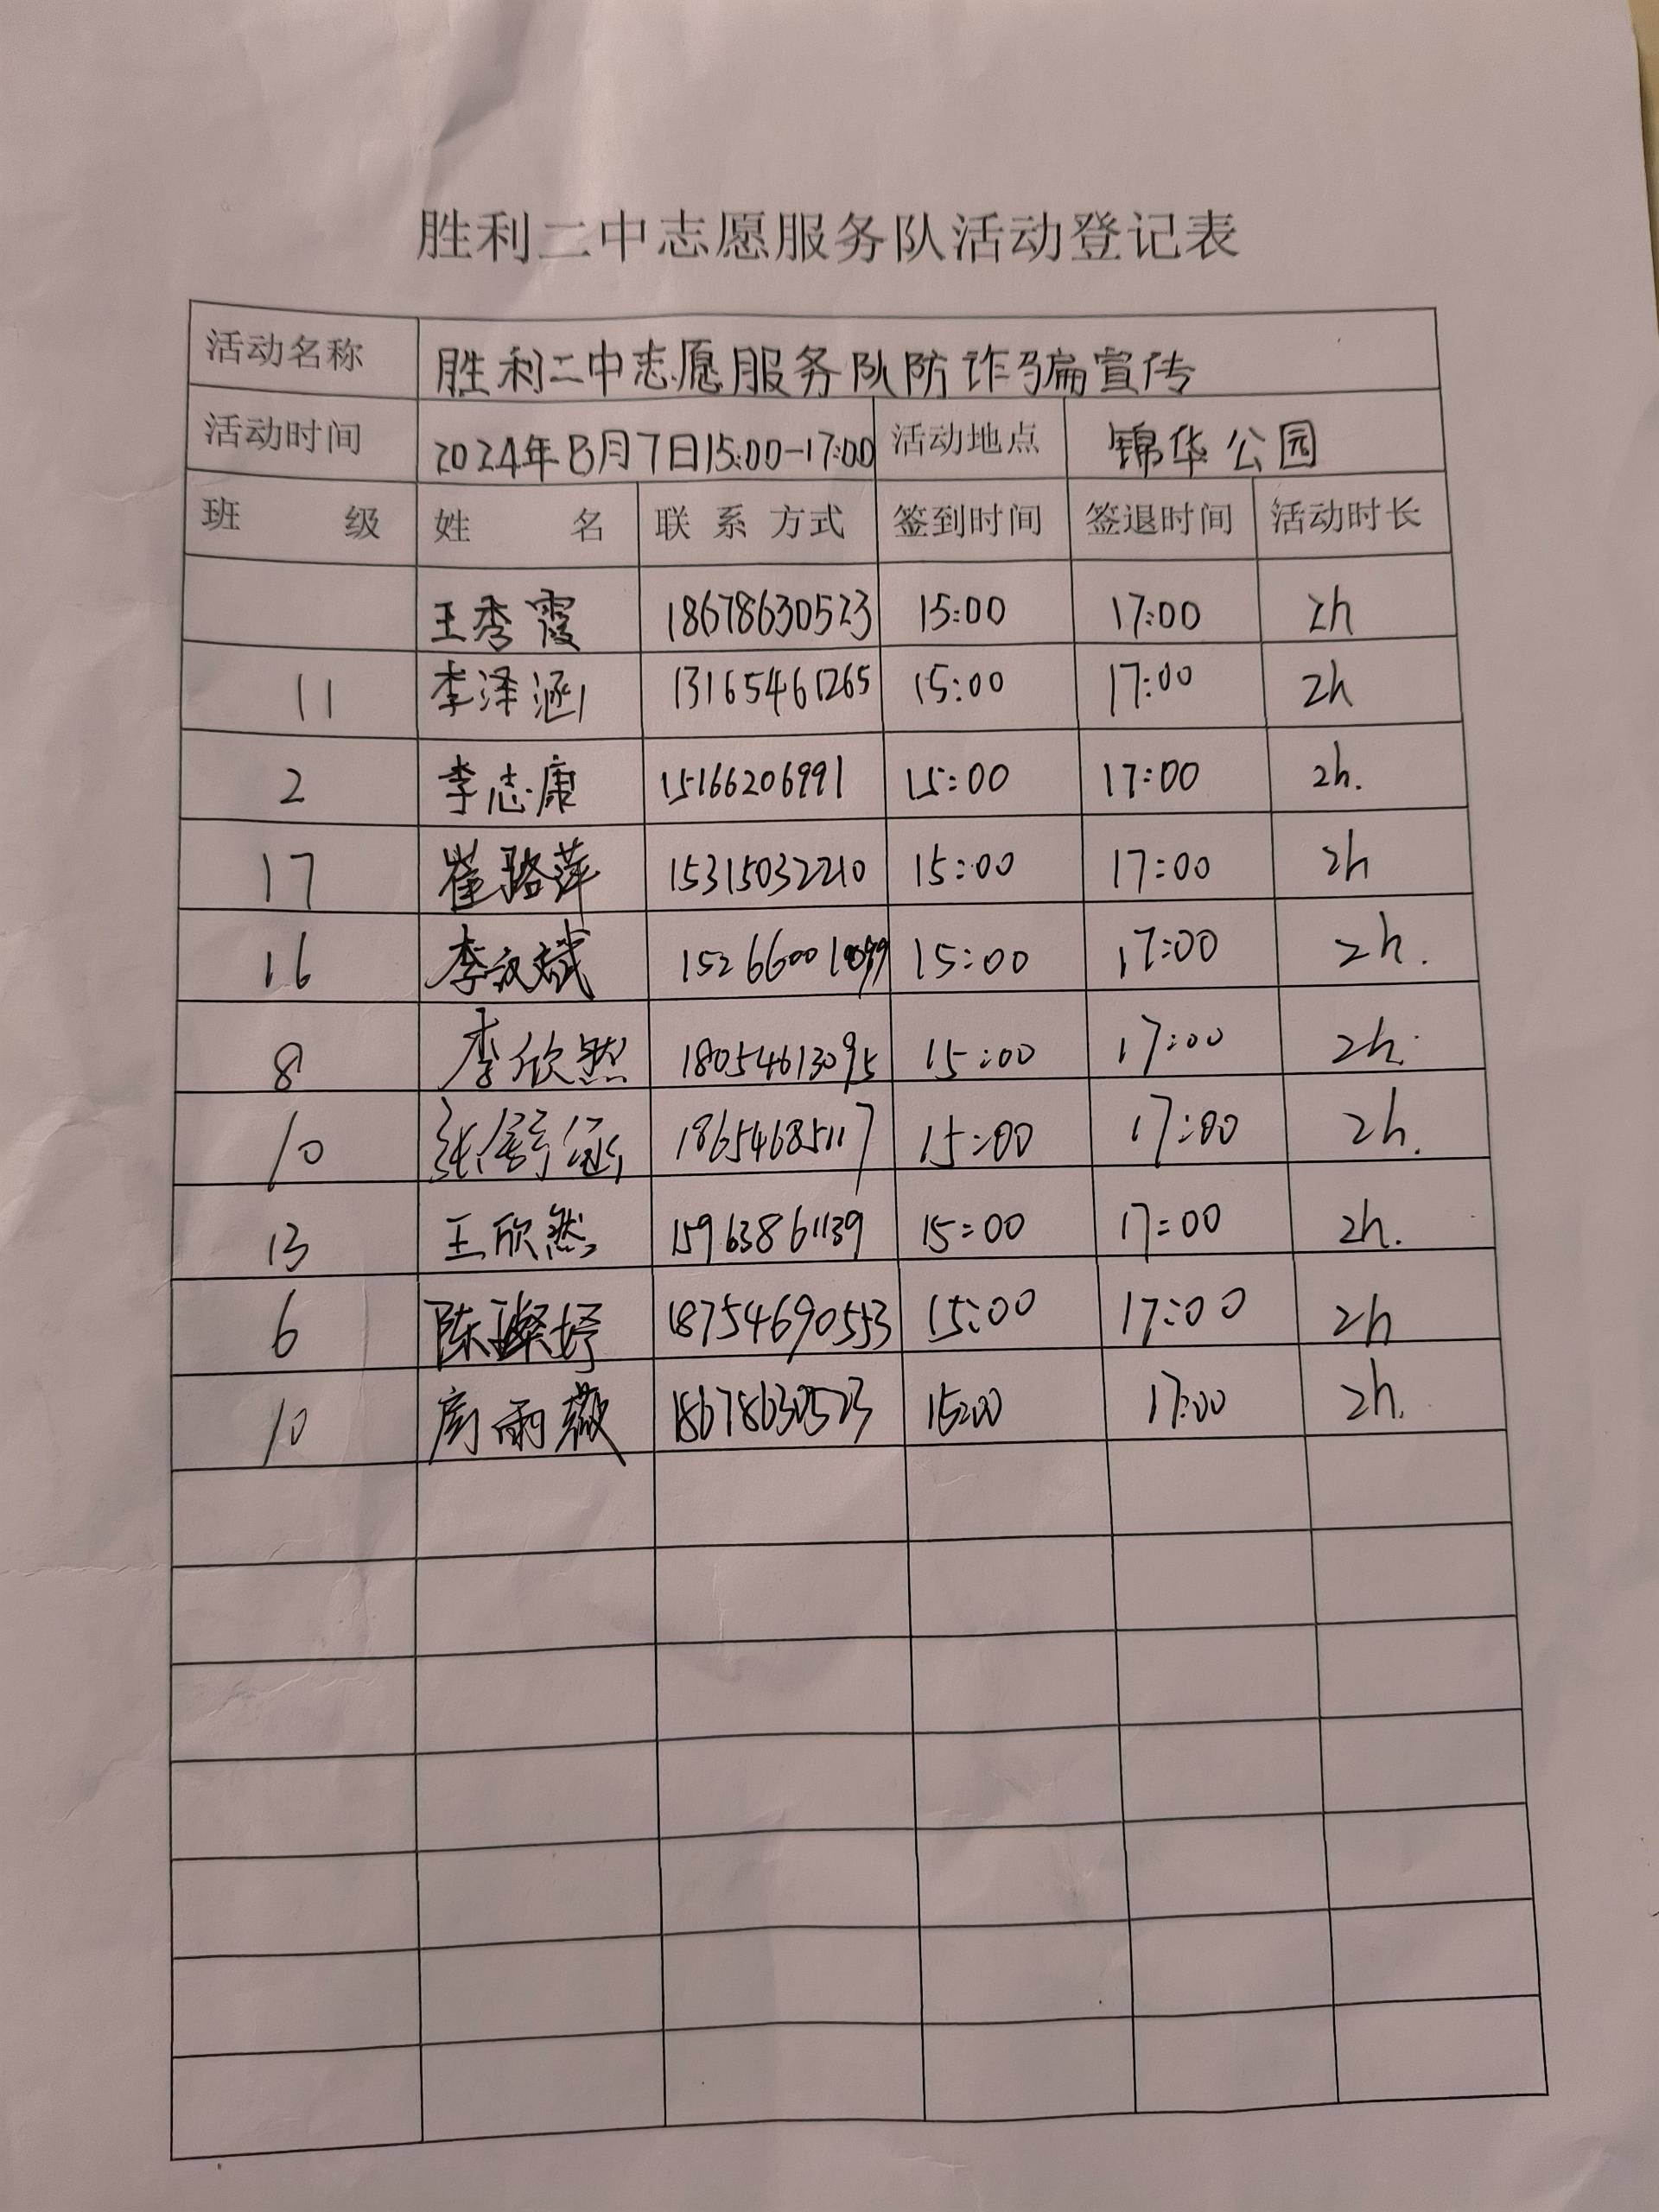 胜利二中志愿服务队活动登记表
活动名称 胜利二中志愿服务队防诈骗宣传
活动时间 2024年8月7日15:00-17:00 活动地点 锦华公园
班 级 姓 名 联系方式 签到时间 签退时间 活动时长
王秀霞 18678630523 15:00 17:00 2h
11 李泽涵 13165461265 15:00 17:00 2h
2 李志康 15166206991 15:00 17:00 2h.
17 崔璐萍 15315032210 15:00 17:00 2h
16 李汶斌 15:00 17:00 2h.
8 李欣然 18054613095 15:00 17:00 2h.
10 张舒涵 18654685117 15:00 17:00 2h.
13 王欣然 15963861139 15:00 17:00 2h.
6 陈璨妤 18754690553 15:00 17:00 2h
10 房雨薇 18678630523 15:00 17:00 2h.